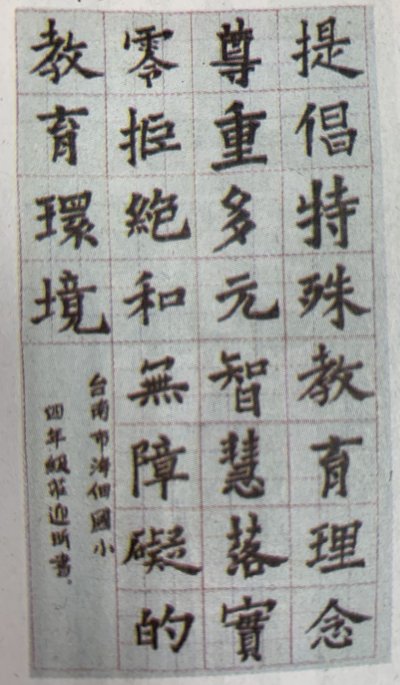 提倡特殊教育理念
尊重多元智慧落實
零拒絕和無障礙的
教育環境
台南市海佃國小
四年級莊迎昕書